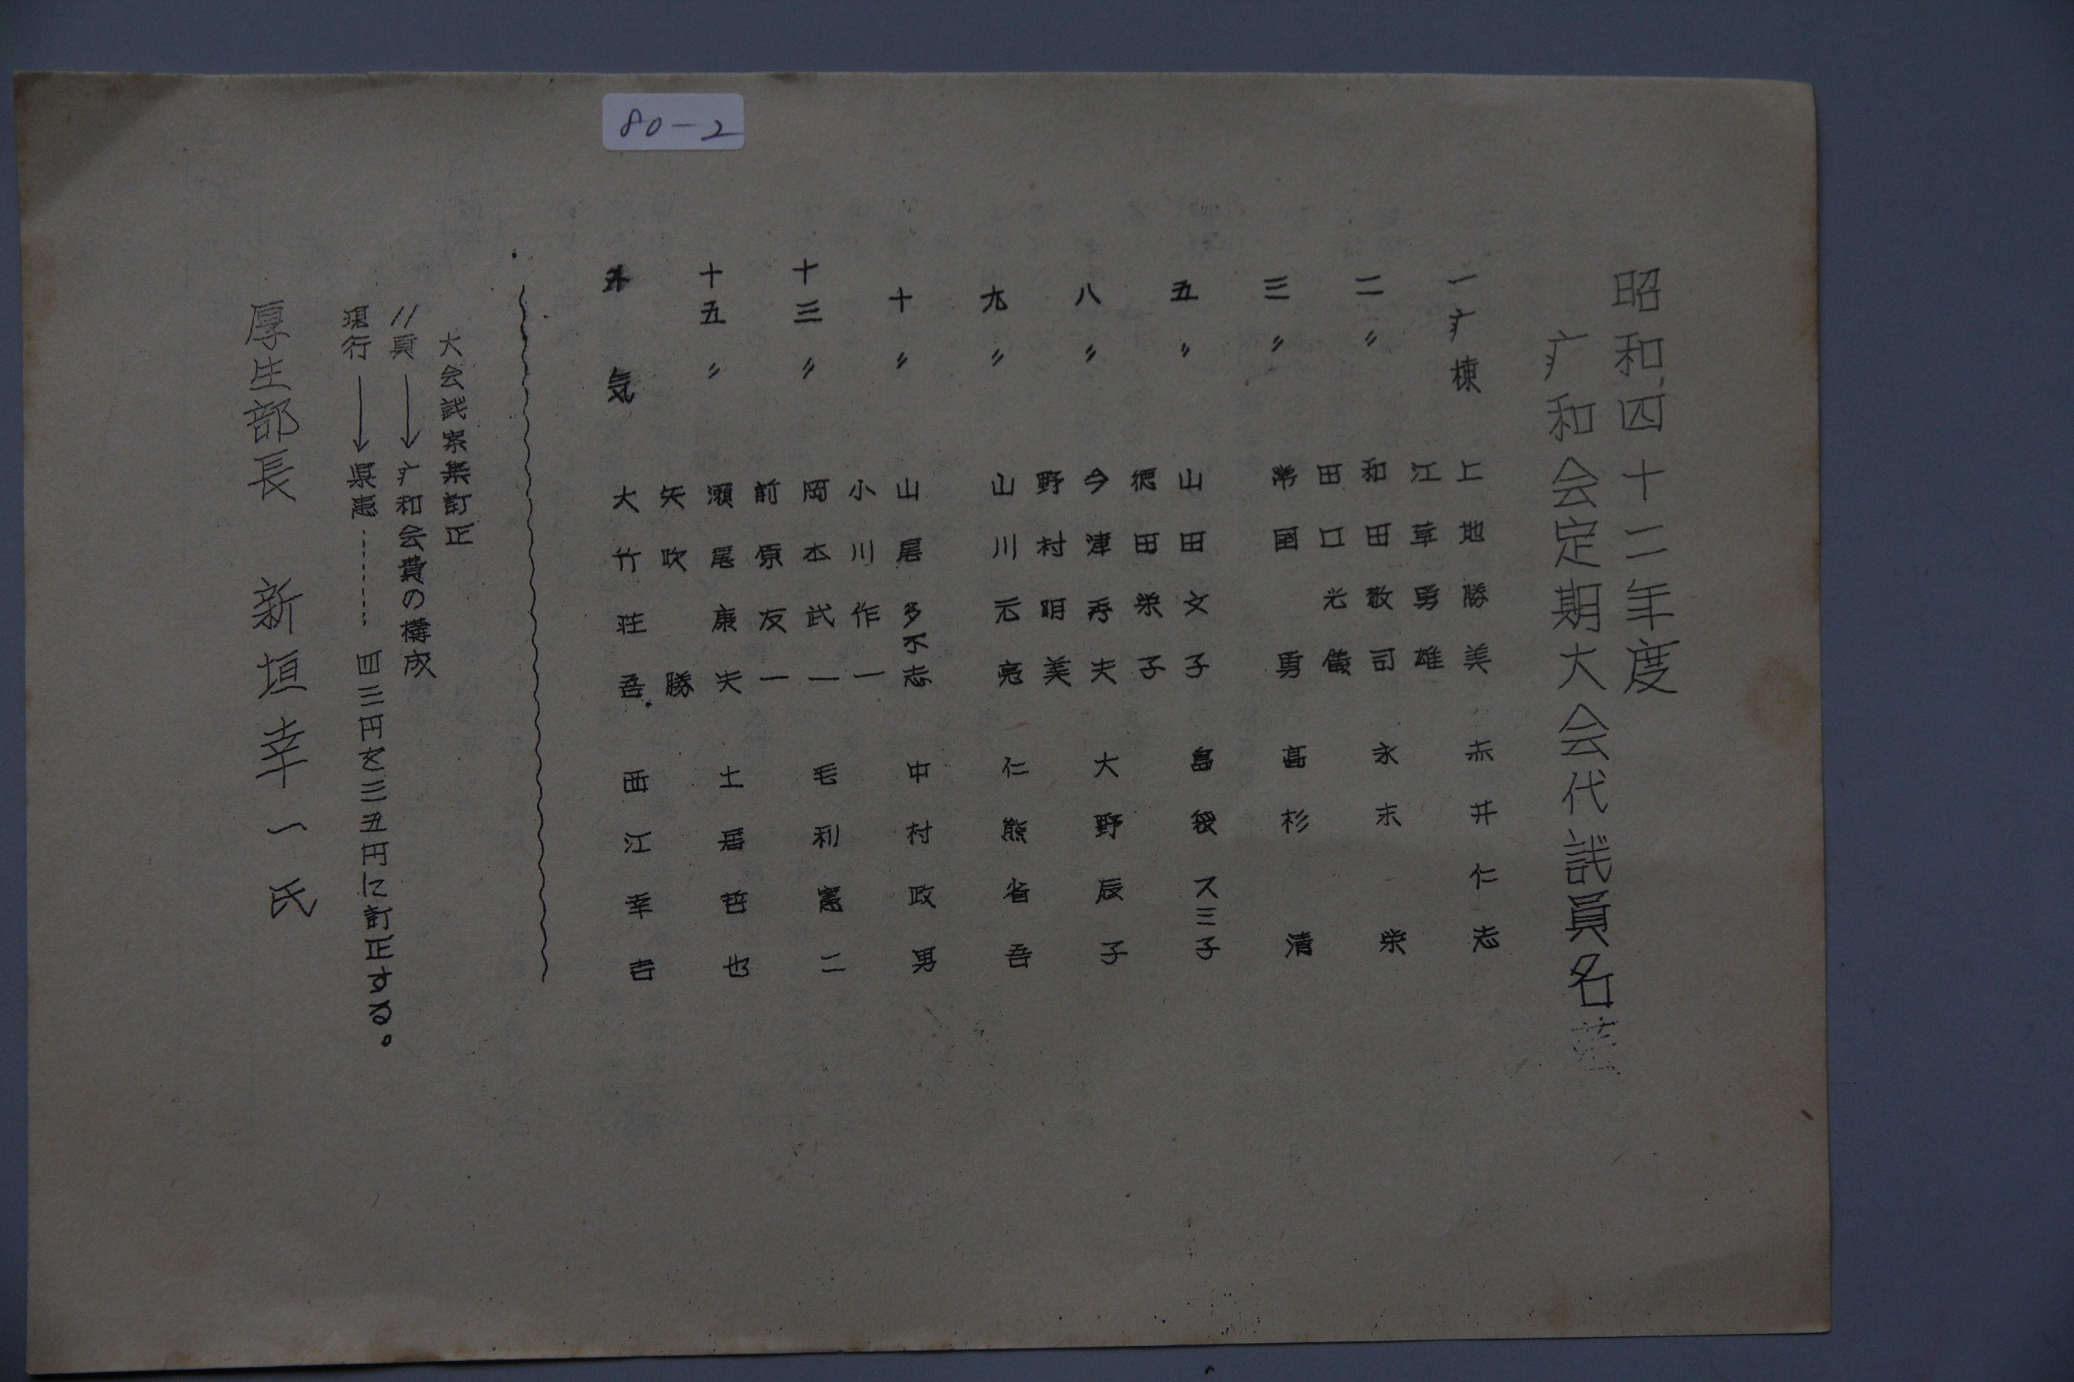 80-2
昭和四十二年度
疒和会定期大会代議員名簿
一疒棟 上地勝美 赤井仁志
江草勇雄
二〃 和田敬司 永末栄
田口光儀
三〃 常国勇 高杉清
五〃 山田文子 島袋スミ子
徳田栄子
八〃 今津秀夫 大野辰子
野村明美
九〃 山川元亮 仁熊省吾
十〃 山尾多不志 中村政男
小川作一
十三〃 岡本武一 毛利憲二
前原友一
十五〃 瀬尾康夫 土居哲也
矢吹勝
外気 大竹荘吾 西江幸吉
大会議案集訂正
11頁→疒和会費の構成
現行→県患……四三円を三五円に訂正する。
厚生部長 新垣幸一氏